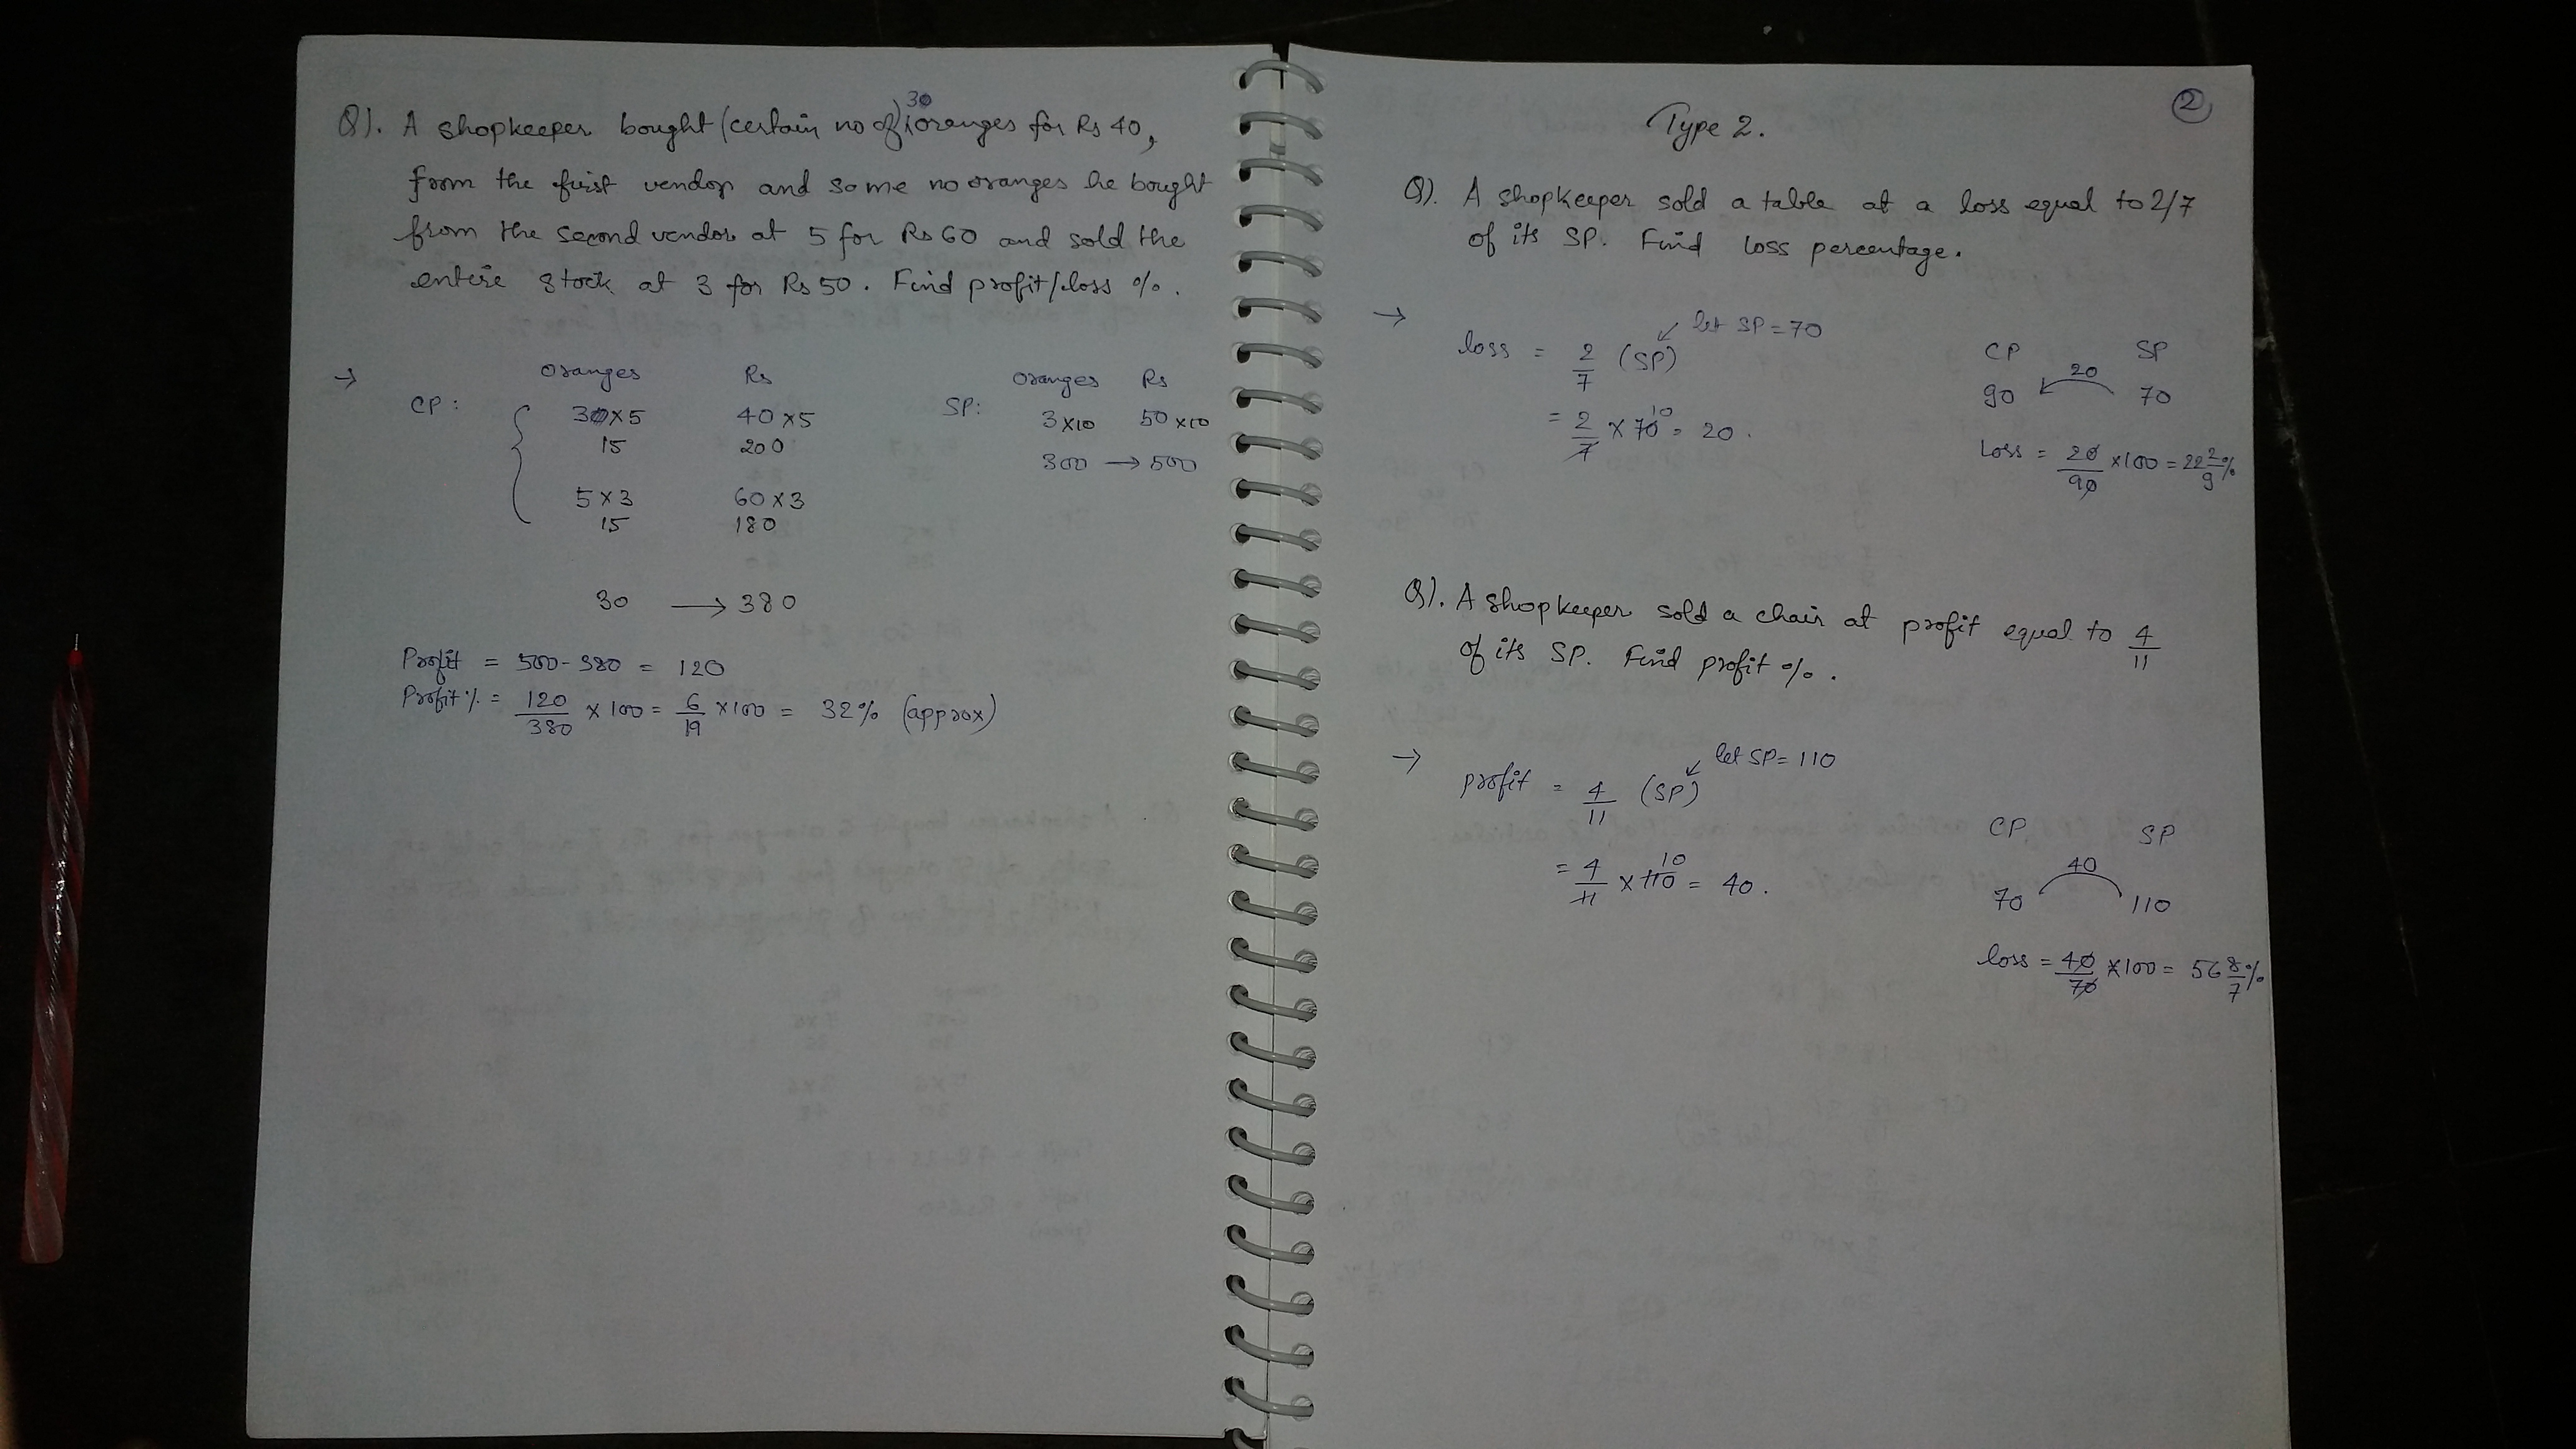 30
Q). A shopkeeper bought (certain no of) oranges for Rs 40,
from the first vendor and same no oranges he bought
from the second vendor at 5 for Rs 60 and sold the
entire stock at 3 for Rs 50. Find profit/loss %.
→ oranges Rs oranges Rs
CP: 30×5 40×5 SP: 3×10 50×10
15 200 300 → 500
5×3 60×3
15 180
30 → 380
Profit = 500-380 = 120
Profit % = 120/380 × 100 = 6/19 ×100 = 32% (approx)
2
Type 2.
Q). A shopkeeper sold a table at a loss equal to 2/7
of its SP. Find loss percentage.
→ let SP = 70
loss = 2/7 (SP) CP SP
20
90 70
= 2/7 × 70 10 = 20.
Loss = 20/90 ×100 = 22 2/9 %
Q). A shopkeeper sold a chair at profit equal to 4/11
of its SP. Find profit %.
→ let SP = 110
profit = 4/11 (SP)
CP SP
= 4/11 × 110 10 = 40. 40
70 110
loss = 40/70 ×100 = 56 8/7 %